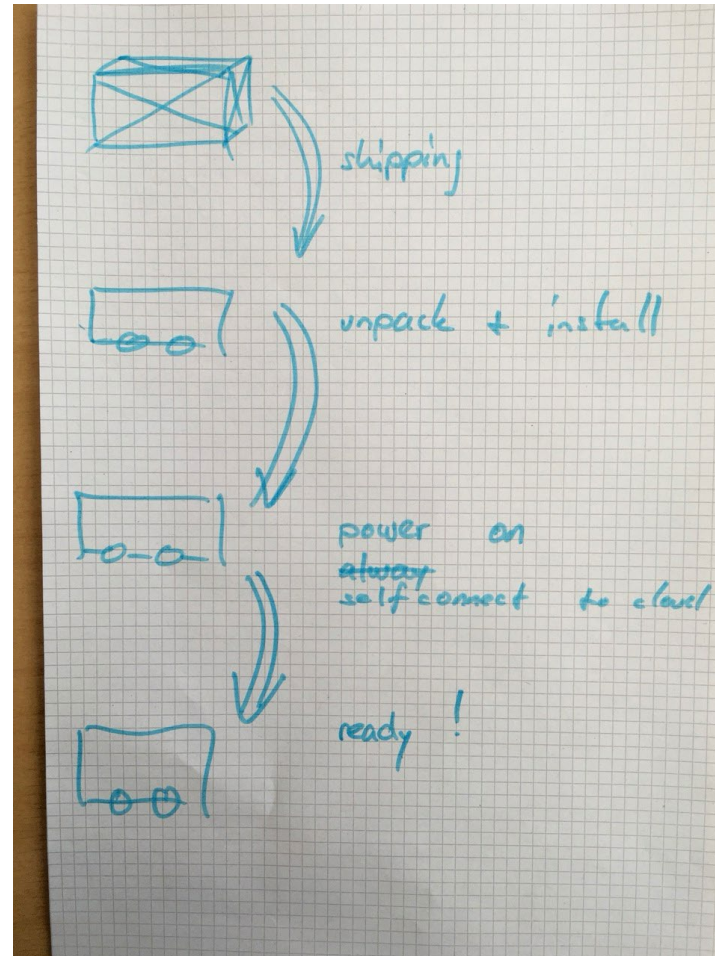 shipping
unpack + install
power on
alway
self connect to cloud
ready !